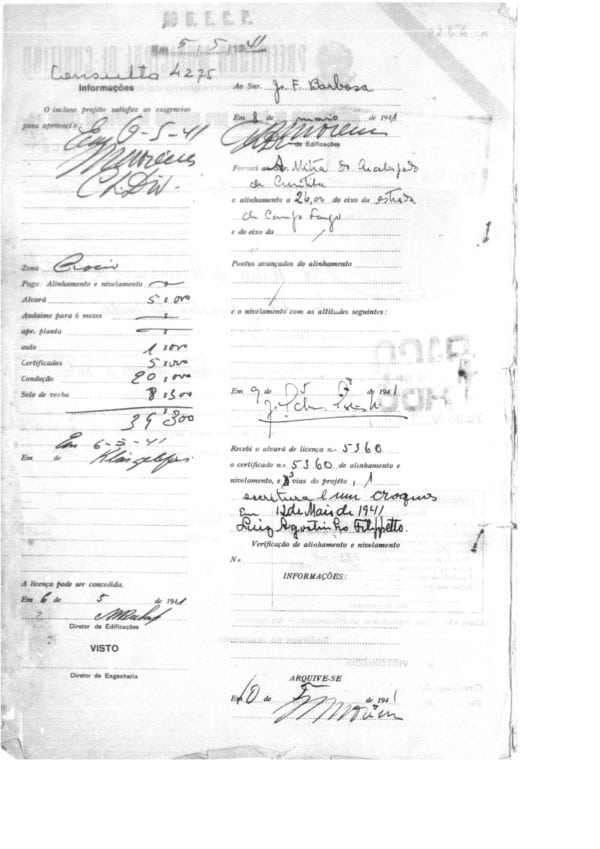 AO D. E. C. P.
Em 5/5/1941
Consulta 4275
Informações
O incluso projéto satisfaz as exigencias
para aprovação:
Em 6-5-41
Ch. Div.
Zona
Paga: Alinhamento e nivelamento
Alvará 5$000
Andaime para 6 mezes
apr. planta
auto 1$000
Certificados 5$000
Condução 20$000
Selo de verba 8$300
39$300
Em 6-5-41
Em de
A licença pode ser concedida.
Em 6 de 5 de 1941
Diretor de Edificações
VISTO
Diretor de Engenharia
Ao Snr. J. F. Barbosa
Em 8 de maio de 1941
de Edificações
Forneci a Mitra do Arcebispado
de Curitiba
o alinhamento a 26,00 do eixo da estrada
de Campo Largo
e do eixo da
Pontos avançados do alinhamento
e o nivelamento com as altitudes seguintes:
Em 9 de 5 de 1941
Recebi o alvará de licença n.º 5360
o certificado n.º 5360 de alinhamento e
nivelamento, e 3 vias do projéto, 1
escritura e um croquis
Em 12 de Maio de 1941
Luiz Agostinho Filippetto.
Verificação de alinhamento e nivelamento
N.º
INFORMAÇÕES:
ARQUIVE-SE
Em 10 de 5 de 1941